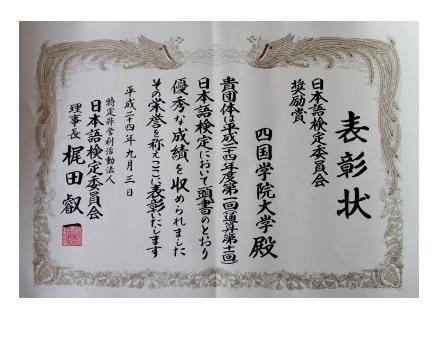 表彰状
日本語検定委員会
奨励賞
四国学院大学殿
貴団体は平成二十四年度第一回(通算第十一回)
日本語検定において頭書のとおり
優秀な成績を収められました
その栄誉を称えここに表彰いたします
平成二十四年九月三日
特定非営利活動法人
日本語検定委員会
理事長 梶田叡